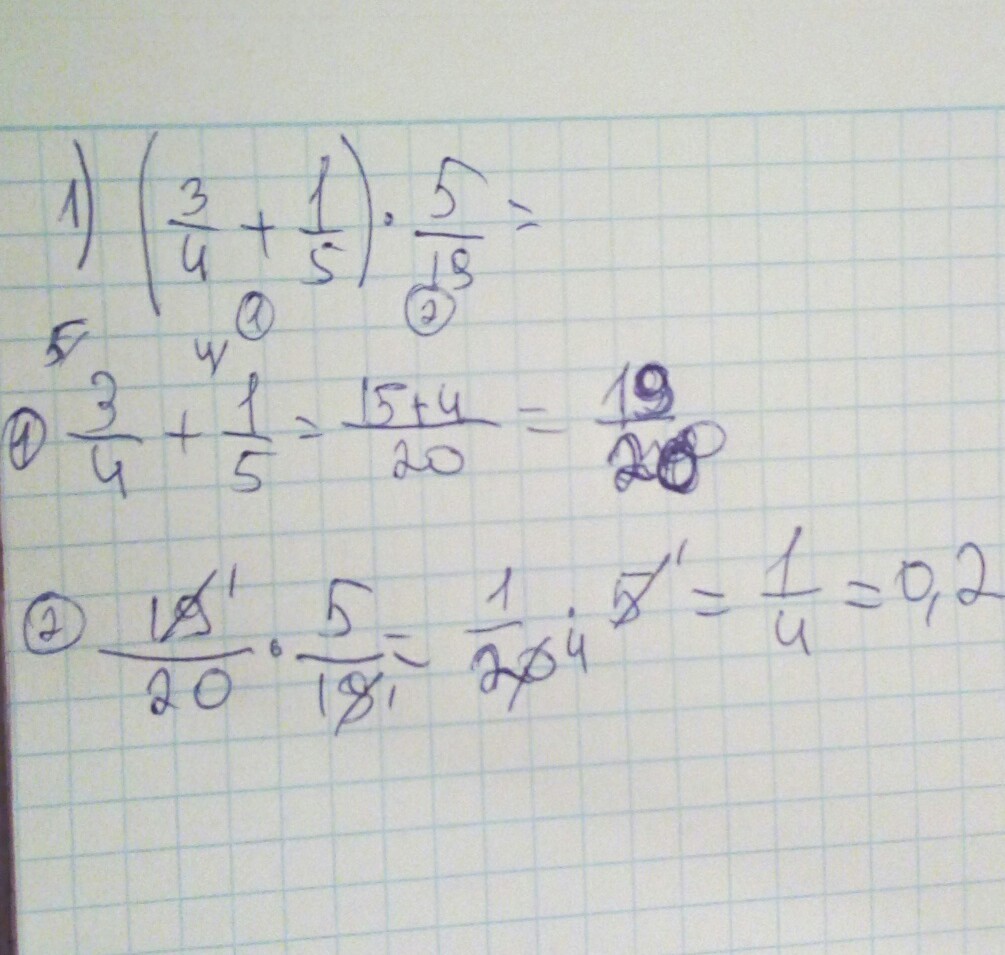 1) (3/4 + 1/5) · 5/19 =
① ②
5 4
① 3/4 + 1/5 = 15+4/20 = 19/20
② 19 1/20 · 5/19 1 = 1/20 4 · 5 1 = 1/4 = 0,2